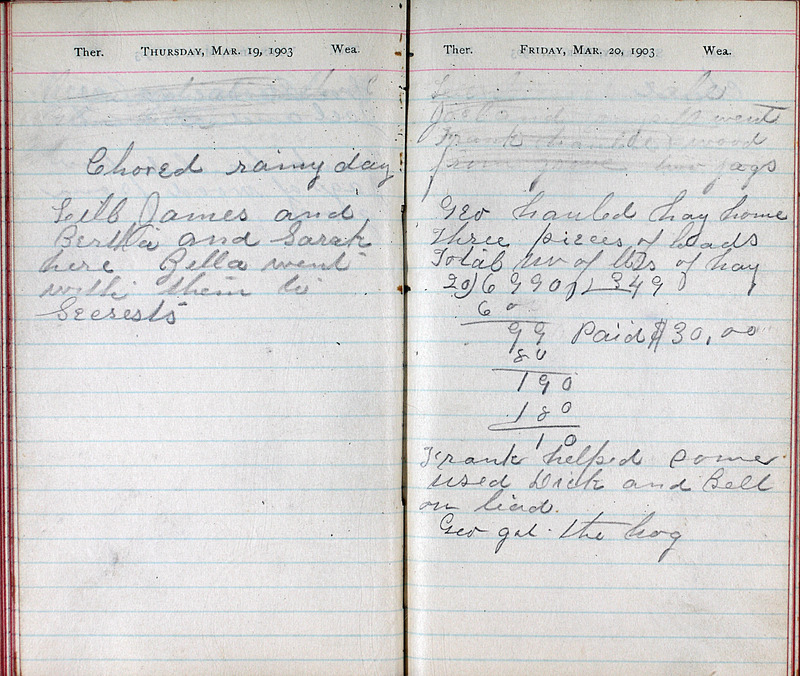 Ther. THURSDAY, MAR. 19, 1903 Wea.
Chored rainy day
James and
Bertha and Sarah
here Bella went
with them to
Secrests
Ther. FRIDAY, MAR. 20, 1903 Wea.
sale
went
Frank wood
from two jags
Geo hauled hay home
Three pieces of loads
Total no of lbs of hay
20)6990)349
60
99 Paid $30,00
80
190
180
10
Frank helped some
used Dick and Bell
on lead.
Geo get the hog